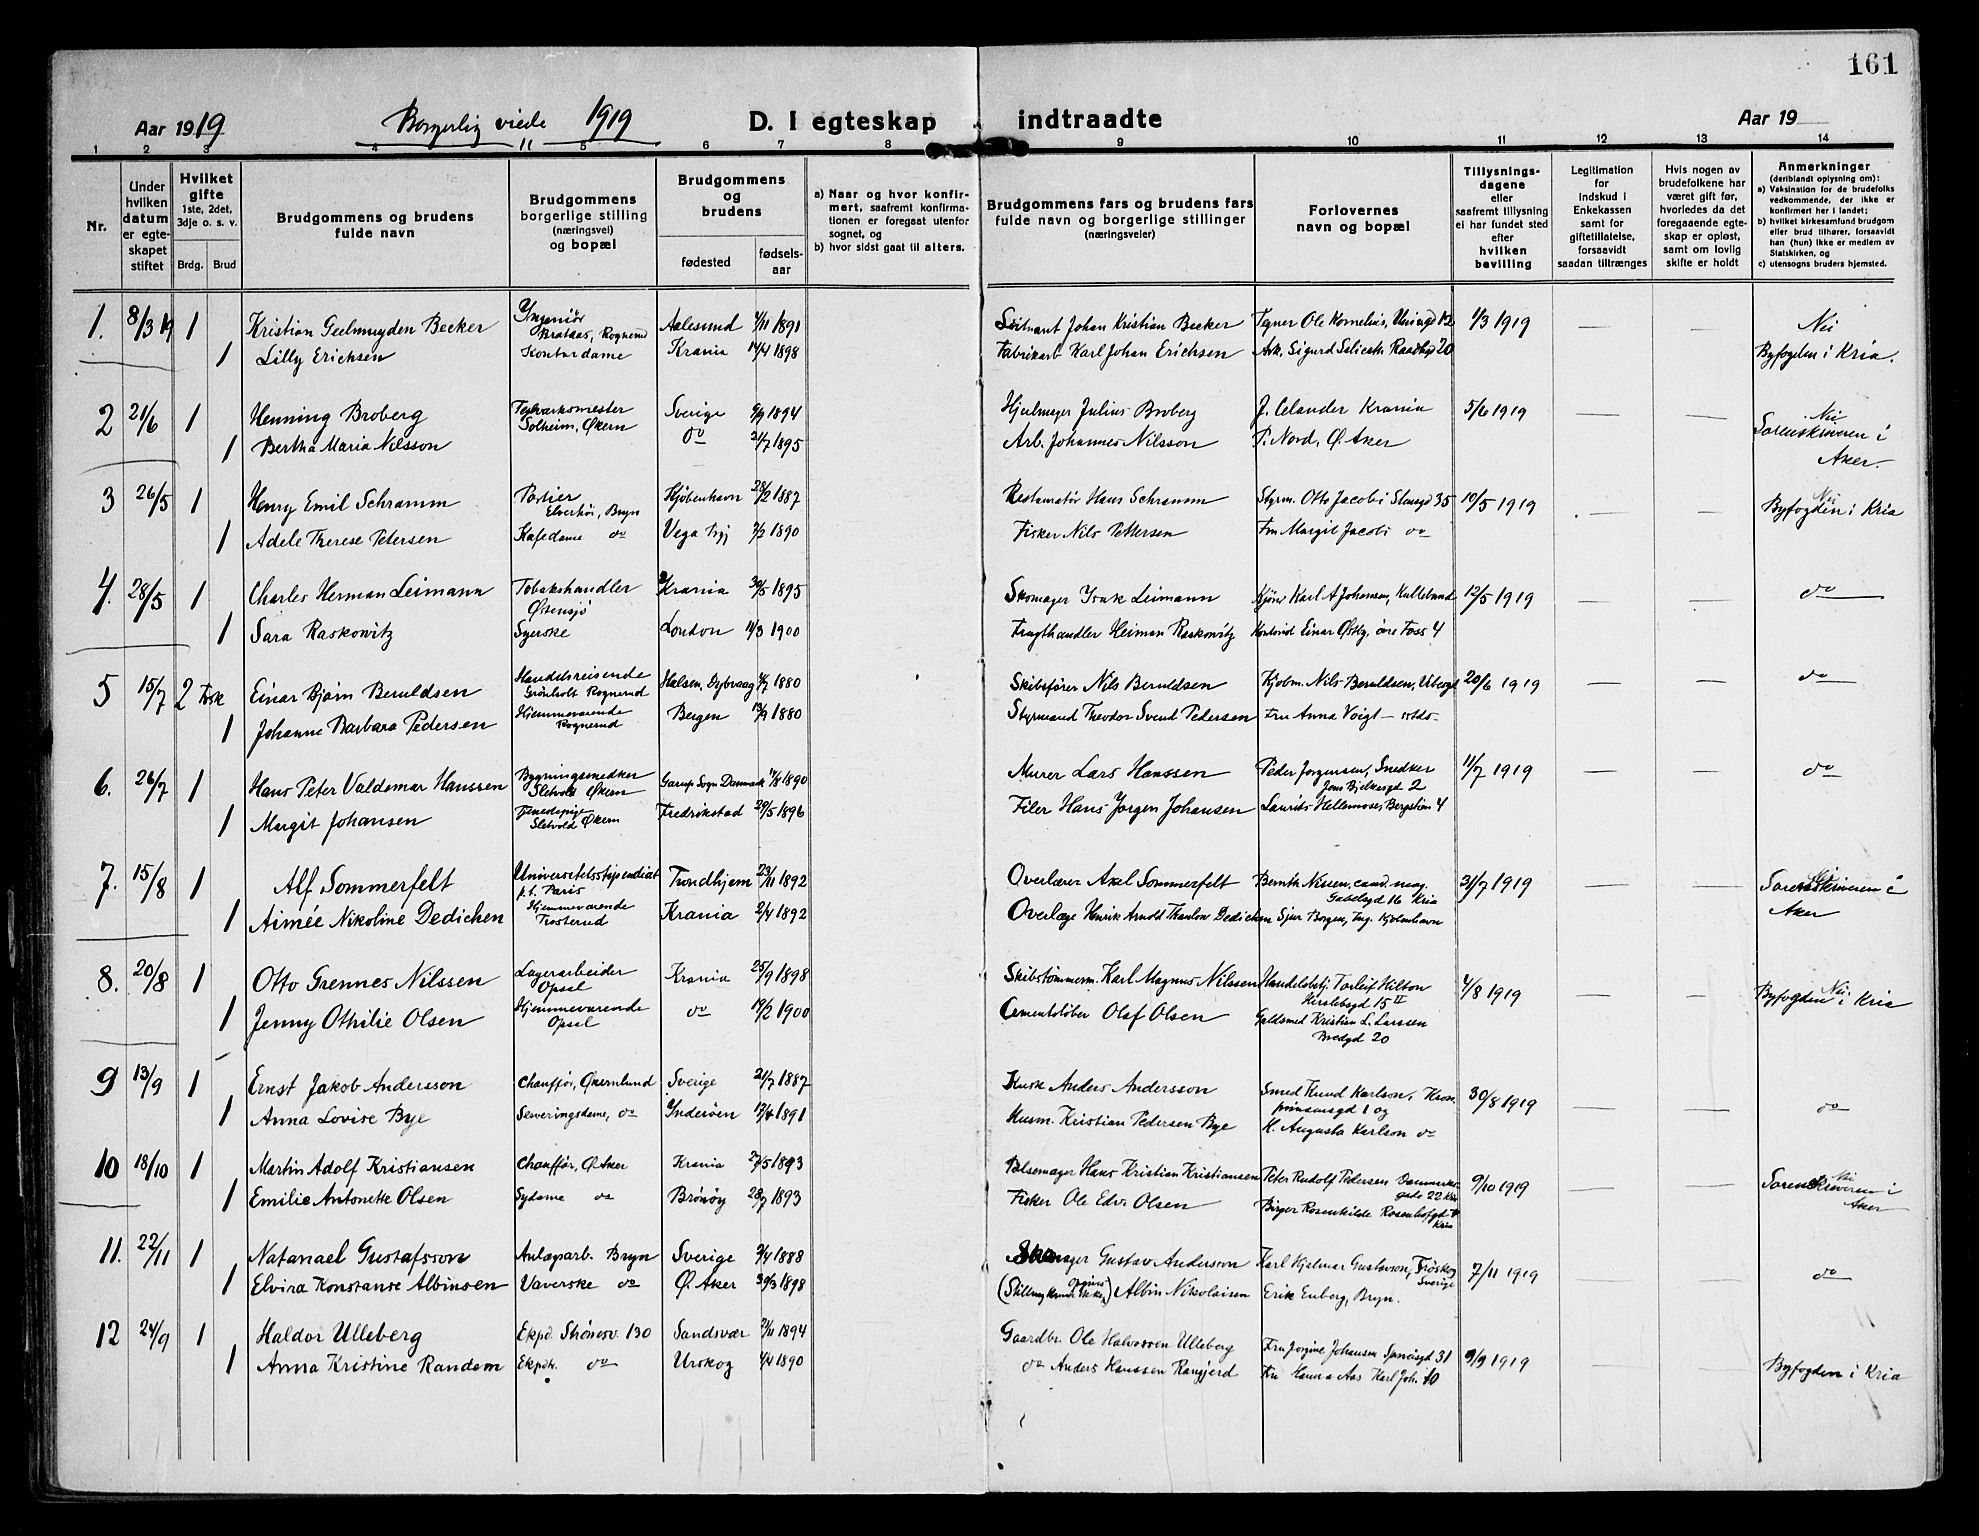 161
Aar 1919 Borgerlig viede 1919 D. I egteskap indtraadte Aar 19
1 2 3 4 5 6 7 8 9 10 11 12 13 14
Nr.
Under hvilken datum er egteskapet stiftet
Hvilket gifte 1ste, 2det, 3dje o. s. v.
Brdg. Brud
Brudgommens og brudens fulde navn
Brudgommens borgerlige stilling (næringsvei) og bopæl
Brudgommens og brudens
fødested fødselsaar
a) Naar og hvor konfirmert, saafremt konfirmationen er foregaat utenfor sognet, og
b) hvor sidst gaat til alters.
Brudgommens fars og brudens fars fulde navn og borgerlige stillinger (næringsveier)
Forlovernes navn og bopæl
Tillysningsdagene eller saafremt tillysning ei har fundet sted efter hvilken bevilling
Legitimation for indskud i Enkekassen samt for giftetillatelse, forsaavidt saadan tiltrænges
Hvis nogen av brudefolkene har været gift før, hvorledes da det foregaaende egteskap er opløst, samt om lovlig skifte er holdt
Anmerkninger (deriblandt oplysning om):
a) Vaksination for de brudefolks vedkommende, der ikke er konfirmert her i landet;
b) hvilket kirkesamfund brudgom eller brud tilhører, forsaavidt han (hun) ikke er medlem av Statskirken, og
c) utensogns bruders hjemsted.
1. 8/3 19 1 Kristian Geelmuyden Becker Ingeniør Brataas, Rognerud Aalesund 1891 Løitnant Johan Kristian Becker Tegner Ole Kornelius, 1/3 1919 — — Nei
1 Lilly Erichsen Kontordame Krania 14/4 1898 Fabrikarb. Karl Johan Erichsen Ark. Sigurd 20 Byfogden i Kria.
2 21/6 1 Henning Broberg Teglverksmester Solheim, Økern Sverige 9/9 1894 Hjulmager Julius Broberg J. Celander Krania 5/6 1919 — — Nei
1 Bertha Maria Nilsson do 21/7 1895 Arb. Johannes Nilsson P. Nord, Ø. Aker Sorenskriveren i Aker.
3 26/5 1 Henry Emil Schramm Portier Elverhøi, Bryn Kjøbenhavn 28/2 1887 Restauratør Hans Schramm Styrm. Otto Jacobi Stensgd 35 10/5 1919 — — Nei
1 Adele Therese Petersen Kafedame do Vega 7/2 1890 Fisker Nils Pettersen Fru Margit Jacobi do Byfogden i Kria
4. 28/5 1 Charles Herman Leimann Tobakshandler Østensjø Krania 30/5 1895 Skomager Isak Leimann Karl A Johansen, 12/5 1919 — — do
1 Sara Raskowitz Syerske London 11/3 1900 Frugthandler Heiman Raskowitz Einar Østby, øvre Foss 4
5 15/7 2 Einar Bjørn Beruldsen Handelsreisende Grønholt Rognerud Halsen, Dybvaag 1880 Skibsfører Nils Beruldsen Kjøbm. Nils Beruldsen, 20/6 1919 do
1 Johanne Barbara Pedersen Hjemmeværende Rognerud Bergen 13/9 1880 Styrmand Theodor Svend Pedersen Fru Anna Voigt
6. 26/7 1 Hans Peter Valdemar Hanssen Bygningssnedker Sletvold Økern Garup Sogn Danmark 1890 Murer Lars Hanssen Peder Jørgensen, Snedker Jens Bjelkesgd 2 11/7 1919 — — do
1 Margit Johansen Tjenestepige Sletvold Økern Fredrikstad 29/5 1896 Filer Hans Jørgen Johansen Laurits Hellemoses, Bergstien 4
7. 15/8 1 Alf Sommerfelt Universitetsstipendiat p.t. Paris Trondhjem 23/11 1892 Overlærer Axel Sommerfelt Bernth Nissen, cand. mag. Gabelsgd 16 Kria 31/7 1919 — — Nei
1 Aimée Nikoline Dedichen Hjemmeværende Trosterud Krania 2/4 1892 Overlæge Henrik Arnold Thaulow Dedichen Sjur Borgen, Ing. Kjøbenhavn Sorenskriveren i Aker
8. 20/8 1 Otto Grennes Nilssen Lagerarbeider Opsal Krania 25/9 1898 Skibstømmerm. Karl Magnus Nilssen Handelsbetj. Torleif Hilton Herslebsgd 15 II 4/8 1919 — — Nei
1 Jenny Othilie Olsen Hjemmeværende Opsal do 19/2 1900 Cementstøber Olaf Olsen Guldsmed Kristian L. Larssen Bredgd 20 Byfogden i Kria
9 13/9 1 Ernst Jakob Andersson Chauffør, Økernlund Sverige 21/7 1887 Kusk Anders Andersson Smed Knud Karlson, Kronprinsensgd 1 og 30/8 1919 — — do
1 Anna Lovise Bye Serveringsdame, do Ynderøen 17/4 1891 Husm. Kristian Pedersen Bye K. Augusta Karlson do
10 18/10 1 Martin Adolf Kristiansen Chauffør, Ø. Aker Krania 27/5 1893 Pølsemager Hans Kristian Kristiansen Peter Rudolf Pedersen Danmarksgade 22 Kria 9/10 1919 — — Nei
1 Emilie Antonette Olsen Sydame do Brønøy 28/7 1893 Fisker Ole Edv. Olsen Birger Rosenkilde Rosenhofgd Kria Sorenskriveren i Aker
11. 22/11 1 Natanael Gustafsson Anlægsarb. Bryn Sverige 2/4 1888 Skomager Gustav Andersson Karl Hjalmar Gustavson, Frøskog Sverige 7/11 1919 do
1 Elvira Konstanse Albinsen Væverske do Ø. Aker 30/3 1898 (Stilling kunde ikke opgives) Albin Nikolaisen Erik Enberg, Bryn.
12 24/9 1 Haldor Ulleberg Ekpd. 130 Sandsvær 1894 Gaardbr. Ole Halvorsen Ulleberg Fru Jørgine Johansen 31 9/9 1919 — —
1 Anna Kristine Randem Ekpdtr. do Urskog 4/4 1890 do Anders Hanssen Fru Hanna Aas Karl Joh. 10 Byfogden i Kria